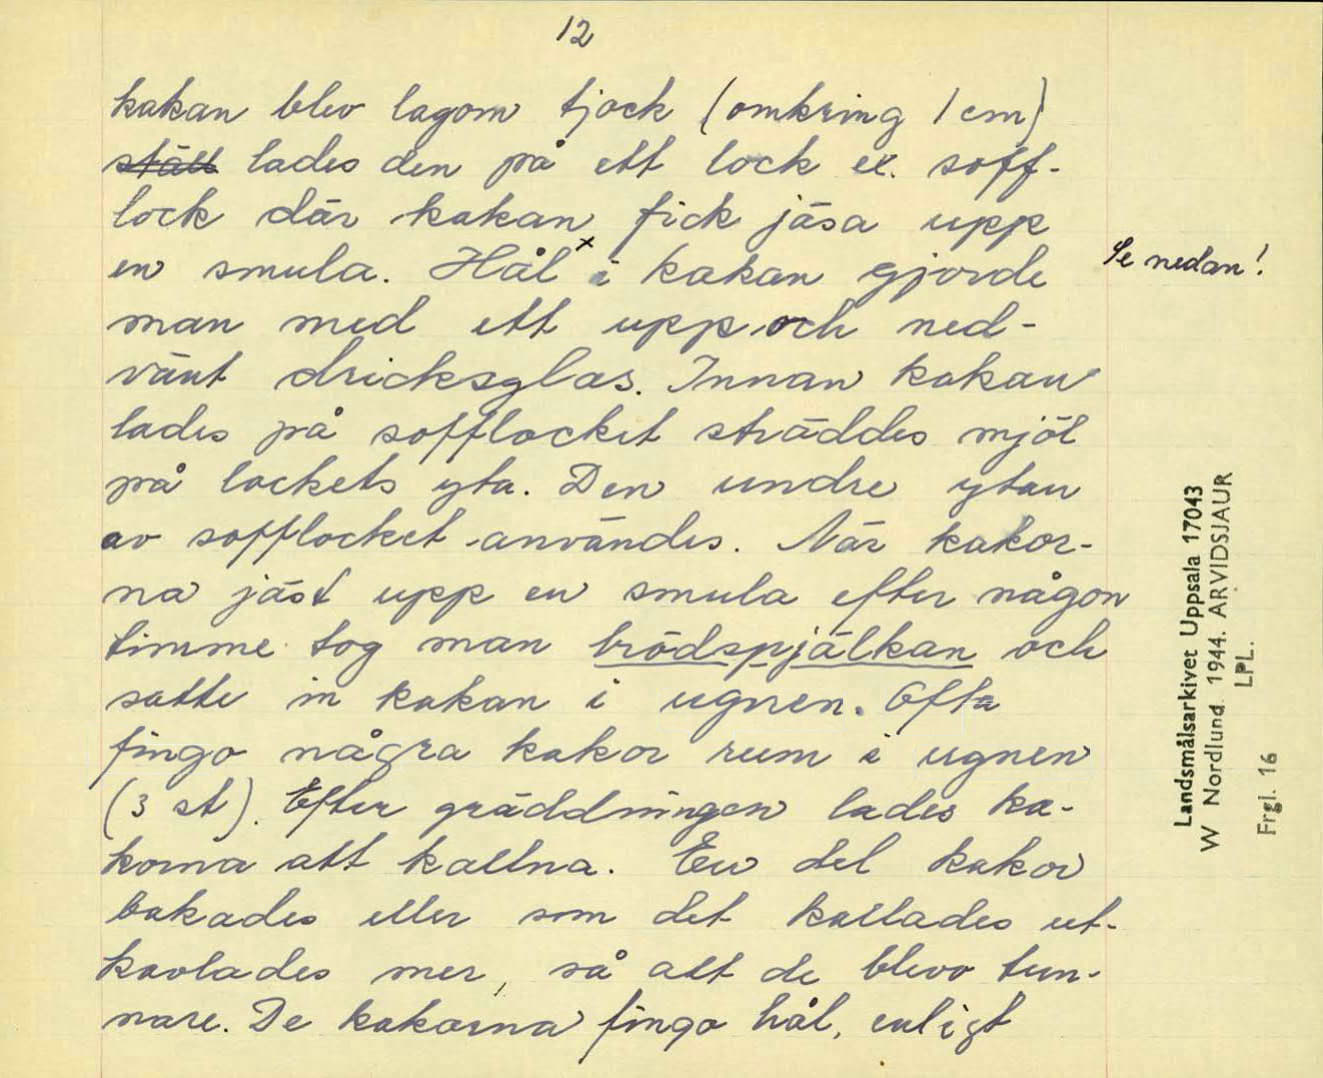 12
kakan blev lagom tjock (omkring 1 cm)
ställ lades den på ett lock ex. soff-
lock där kakan fick jäsa upp
en smula. Hål x i kakan gjorde
Se nedan!
man med ett upp och ned-
vänt dricksglas. Innan kakan
lades på sofflocket sträddes mjöl
på lockets yta. Den undre ytan
av sofflocket användes. När kakor-
na jäst upp en smula efter någon
timme tog man brödspjälkan och
satte in kakan i ugnen. Ofta
fingo några kakor rum i ugnen
(3 st). Efter gräddningen lades ka-
korna att kallna. En del kakor
bakades eller som det kallades ut-
kavlades mer, så att de blevo tun-
nare. De kakorna fingo hål, enligt
Landsmålsarkivet Uppsala 17043
W Nordlund. 1944. ARVIDSJAUR
LPL.
Frgl. 16